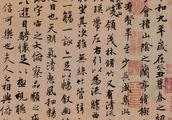 和九年歲在癸丑暮春之初
會稽山陰之蘭亭脩禊
群賢畢至少長咸集此
峻領茂林脩竹又有清流
帶左右引以為流觴曲
坐其次雖無絲竹管弦
一觴一詠亦足以暢敘幽
日也天朗氣清惠風和暢
宇宙之大俯察品類
以遊目騁懷足以極視聽
信可樂也夫人之相與俯